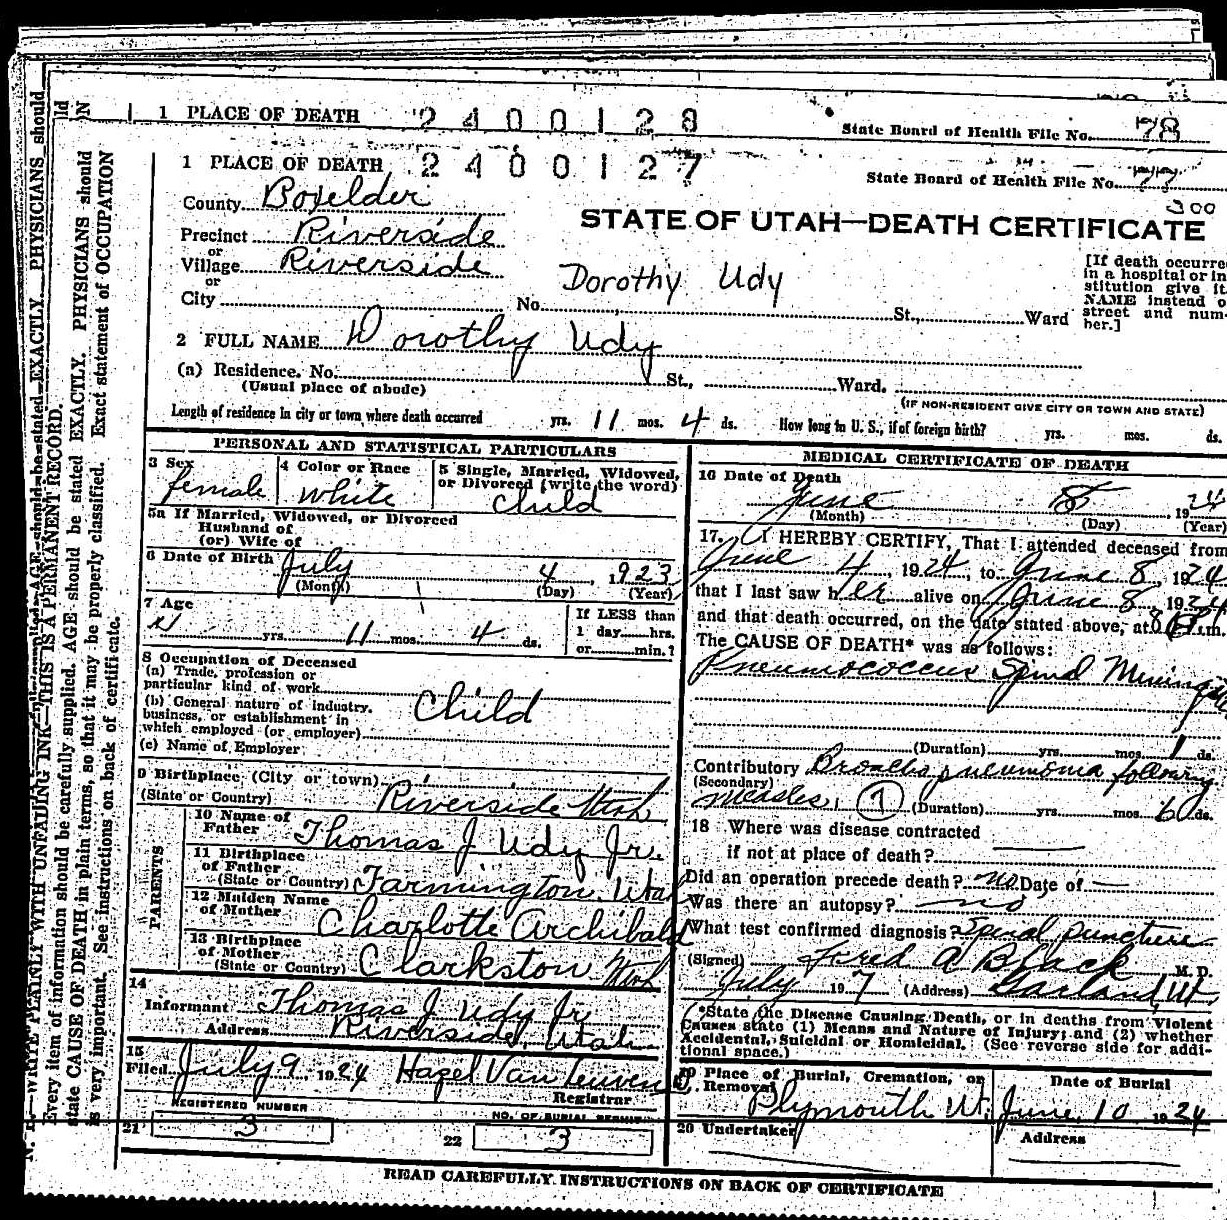 1 PLACE OF DEATH 2400128 State Board of Health File No. 78
1 PLACE OF DEATH 2400127 State Board of Health File No.
300
County Boxelder
STATE OF UTAH—DEATH CERTIFICATE
Precinct Riverside
or
Village Riverside
or
Dorothy Udy
[If death occurred
in a hospital or in-
stitution give it
NAME instead o
street and num-
ber.]
City No. St., Ward
2 FULL NAME Dorothy Udy
(a) Residence. No. St., Ward.
(Usual place of abode)
(IF NON-RESIDENT GIVE CITY OR TOWN AND STATE)
Length of residence in city or town where death occurred yrs. 11 mos. 4 ds. How long in U. S., if of foreign birth? yrs. mos. ds.
PERSONAL AND STATISTICAL PARTICULARS
3 Sex female
4 Color or Race White
5 Single, Married, Widowed,
or Divorced (write the word)
Child
5a If Married, Widowed, or Divorced
Husband of
(or) Wife of
6 Date of Birth July 4, 1923
(Month) (Day) (Year)
7 Age
yrs. 11 mos. 4 ds.
If LESS than
1 day hrs.
or min.?
8 Occupation of Deceased
(a) Trade, profession or
particular kind of work
(b) General nature of industry,
business, or establishment in
which employed (or employer)
Child
(c) Name of Employer
9 Birthplace (City or town)
(State or Country) Riverside Utah
PARENTS
10 Name of
Father Thomas J Udy Jr.
11 Birthplace
of Father
(State or Country) Farmington Utah
12 Maiden Name
of Mother Charlotte Archibald
13 Birthplace
of Mother
(State or Country) Clarkston Utah
14
Informant Thomas J Udy Jr
Address Riverside, Utah
15
Filed July 9 1924 Hazel Van Leuven
Registrar
REGISTERED NUMBER
21 3
NO. OF BURIAL PERMIT
22 3
MEDICAL CERTIFICATE OF DEATH
16 Date of Death
June 8 1924
(Month) (Day) (Year)
17. I HEREBY CERTIFY, That I attended deceased from
June 4, 1924, to June 8, 1924
that I last saw her alive on June 8, 1924
and that death occurred, on the date stated above, at 8 P.m.
The CAUSE OF DEATH* was as follows:
Pneumococcus Spinal Meningitis
(Duration) yrs. mos. 1 ds.
Contributory Broncho pneumonia following
(Secondary)
measles. 7 (Duration) yrs. mos. 6 ds.
18 Where was disease contracted
if not at place of death?
Did an operation precede death? no Date of —
Was there an autopsy? no
What test confirmed diagnosis? Spinal puncture
(Signed) Fred A Black M. D.
July 197 (Address) Garland, Ut.
*State the Disease Causing Death, or in deaths from Violent
Causes state (1) Means and Nature of Injury; and (2) whether
Accidental, Suicidal or Homicidal. (See reverse side for addi-
tional space.)
19 Place of Burial, Cremation, or
Removal
Plymouth Ut.
Date of Burial
June 10 1924
20 Undertaker
Address
READ CAREFULLY INSTRUCTIONS ON BACK OF CERTIFICATE
WRITE PLAINLY WITH UNFADING INK—THIS IS A PERMANENT RECORD.
Every item of information should be carefully supplied. AGE should be stated EXACTLY. PHYSICIANS should
state CAUSE OF DEATH in plain terms, so that it may be properly classified. Exact statement of OCCUPATION
is very important. See instructions on back of certificate.